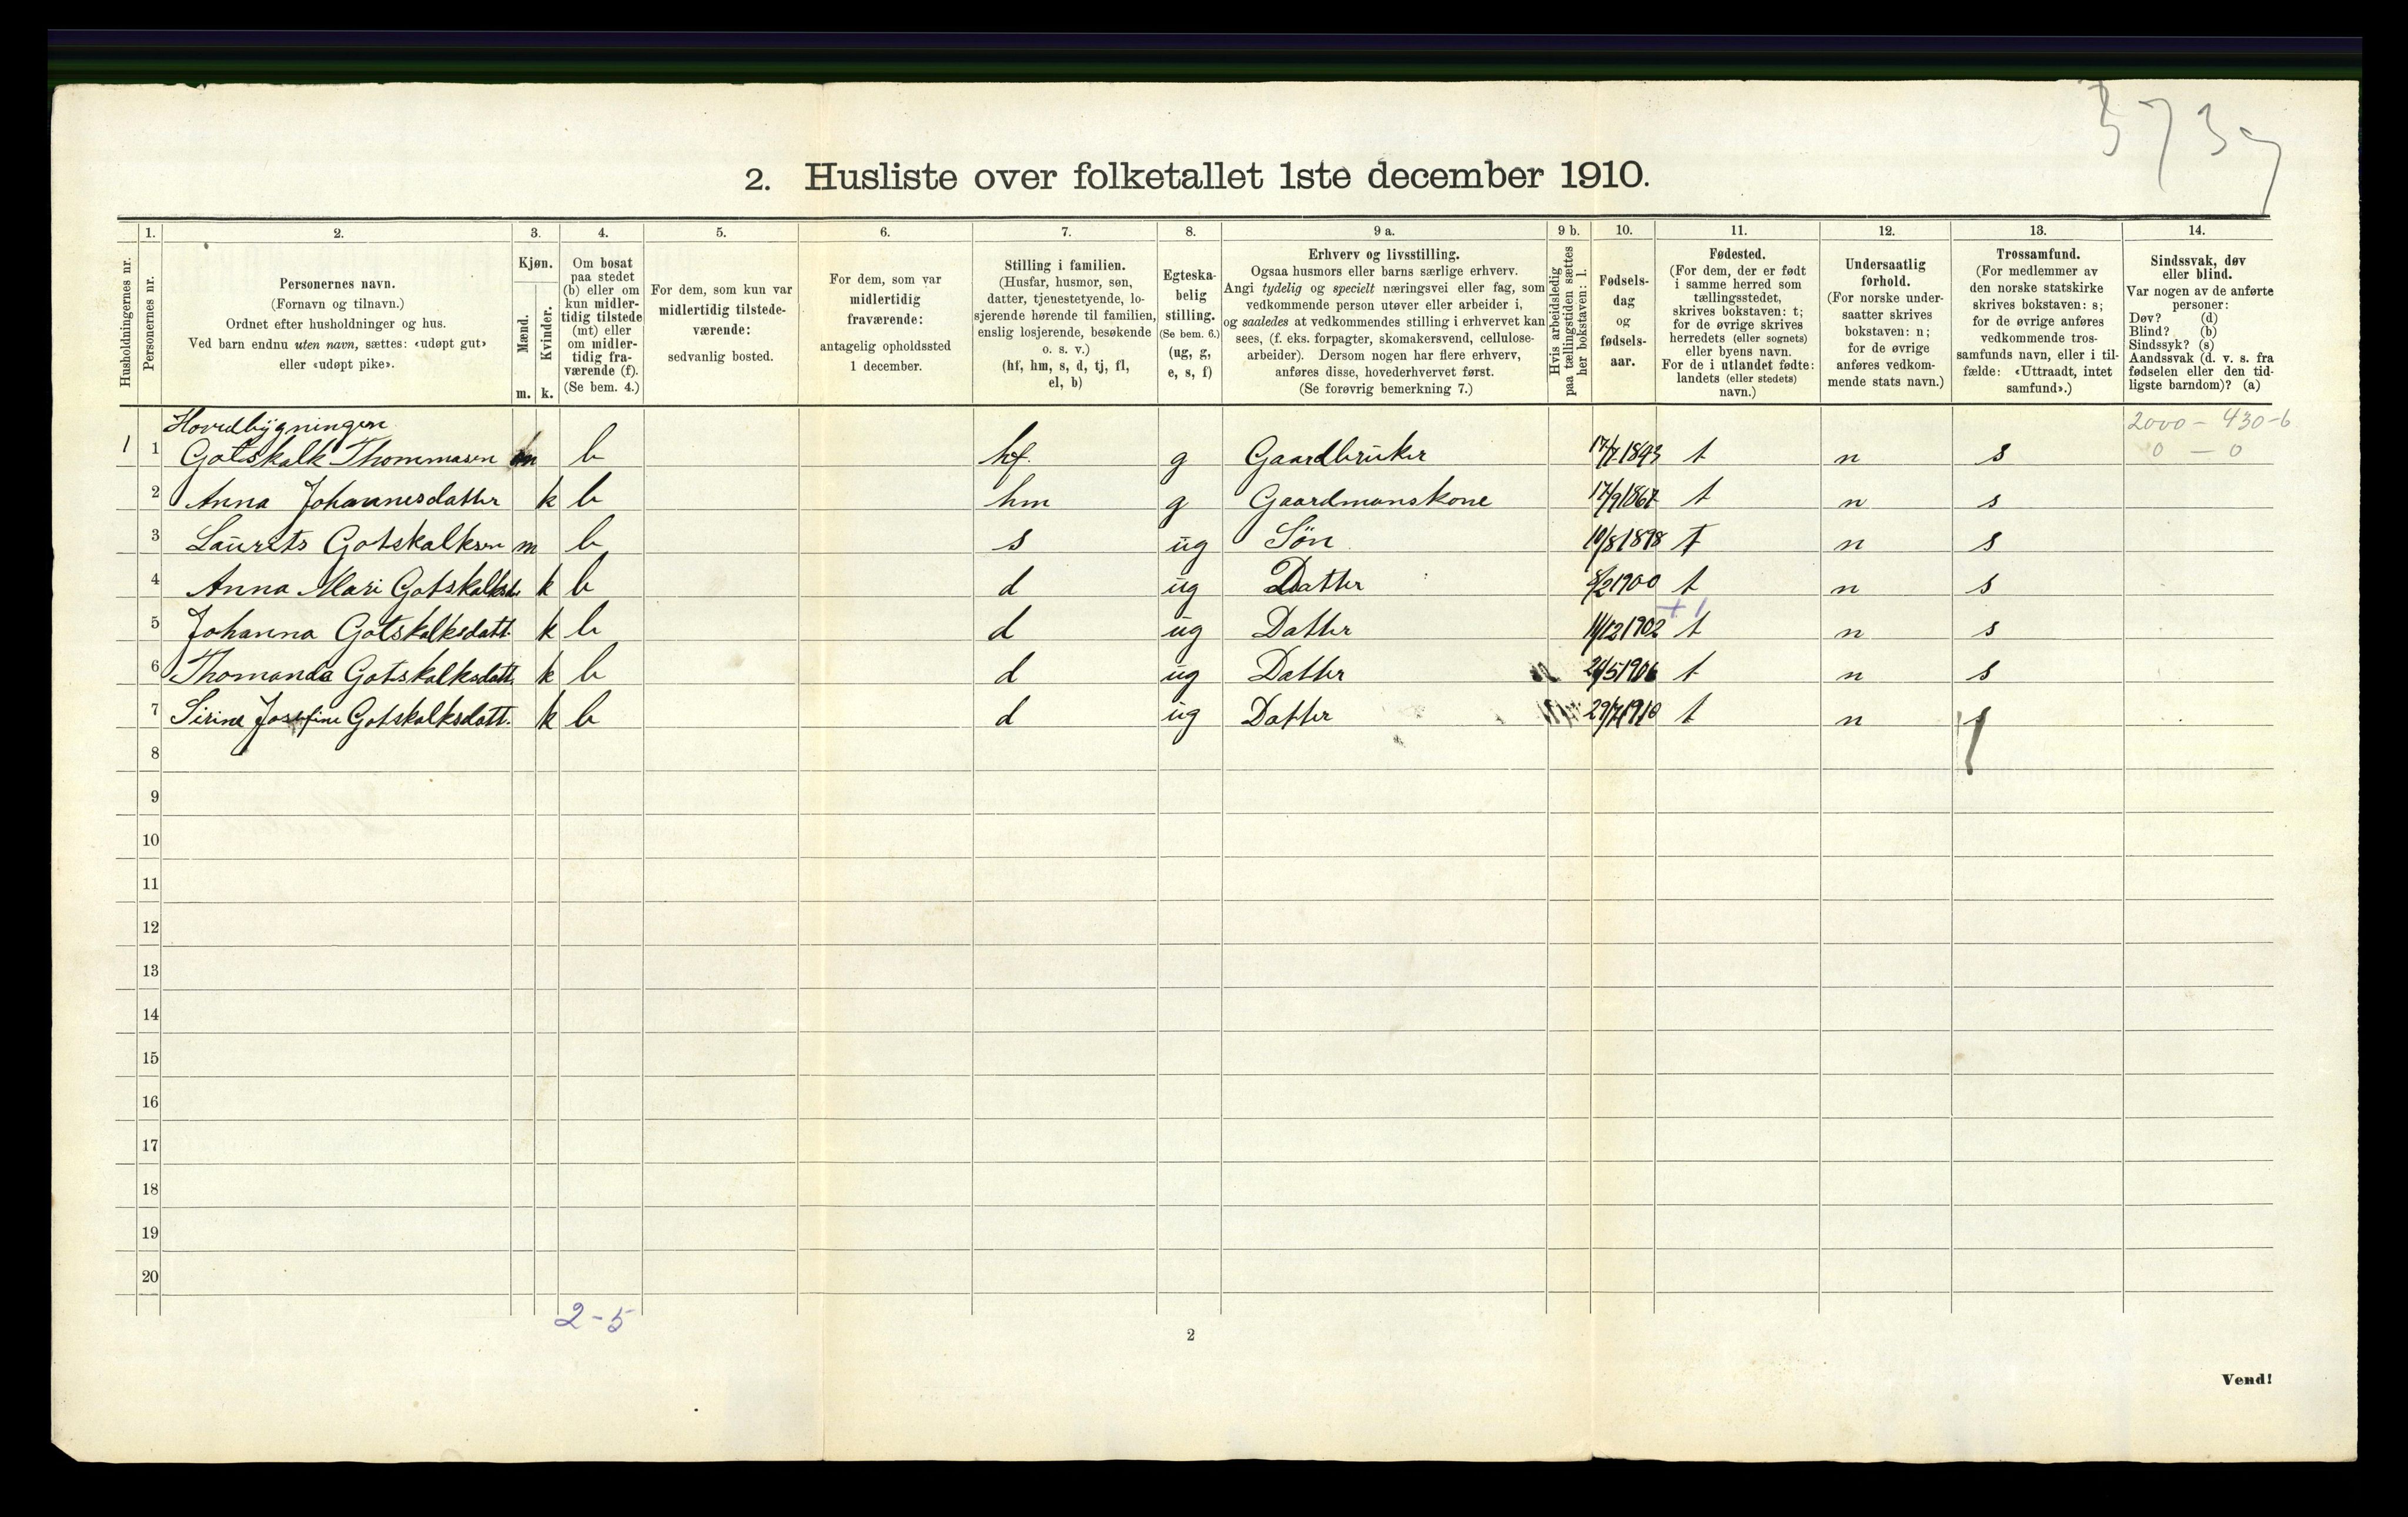 5737
2. Husliste over folketallet 1ste december 1910.
1. 2. 3. 4. 5. 6. 7. 8. 9 a. 9 b. 10. 11. 12. 13. 14.
Husholdningernes nr.
Personernes nr.
Personernes navn.
(Fornavn og tilnavn.)
Ordnet efter husholdninger og hus.
Ved barn endnu uten navn, sættes: «udøpt gut»
eller «udøpt pike».
Kjøn.
Mænd.
Kvinder.
m. k.
Om bosat
paa stedet
(b) eller om
kun midler-
tidig tilstede
(mt) eller
om midler-
tidig fra-
værende (f).
(Se bem. 4.)
For dem, som kun var
midlertidig tilstede-
værende:
sedvanlig bosted.
For dem, som var
midlertidig
fraværende:
antagelig opholdssted
1 december.
Stilling i familien.
(Husfar, husmor, søn,
datter, tjenestetyende, lo-
sjerende hørende til familien,
enslig losjerende, besøkende
o. s. v.)
(hf, hm, s, d, tj, fl,
el, b)
Egteska-
belig
stilling.
(Se bem. 6.)
(ug, g,
e, s, f)
Erhverv og livsstilling.
Ogsaa husmors eller barns særlige erhverv.
Angi tydelig og specielt næringsvei eller fag, som
vedkommende person utøver eller arbeider i,
og saaledes at vedkommendes stilling i erhvervet kan
sees, (f. eks. forpagter, skomakersvend, cellulose-
arbeider). Dersom nogen har flere erhverv,
anføres disse, hovederhvervet først.
(Se forøvrig bemerkning 7.)
Hvis arbeidsledig
paa tællingstiden sættes
her bokstaven: l.
Fødsels-
dag
og
fødsels-
aar.
Fødested.
(For dem, der er født
i samme herred som
tællingsstedet,
skrives bokstaven: t;
for de øvrige skrives
herredets (eller sognets)
eller byens navn.
For de i utlandet fødte:
landets (eller stedets)
navn.)
Undersaatlig
forhold.
(For norske under-
saatter skrives
bokstaven: n;
for de øvrige
anføres vedkom-
mende stats navn.)
Trossamfund.
(For medlemmer av
den norske statskirke
skrives bokstaven: s;
for de øvrige anføres
vedkommende tros-
samfunds navn, eller i til-
fælde: «Uttraadt, intet
samfund».)
Sindssvak, døv
eller blind.
Var nogen av de anførte
personer:
Døv? (d)
Blind? (b)
Sindssyk? (s)
Aandssvak (d. v. s. fra
fødselen eller den tid-
ligste barndom)? (a)
Hovedbygningen
2000 - 430-6
1 1 Gotskalk Thommasen m b hf. g Gaardbruker t n s 0 - 0
2 Anna Johannesdatter k b hm g Gaardmanskone 17/9 1867 t n s
3 Laurits Gotskalksen m b s ug Søn 10/8 1898 t n s
4 Anna Mari Gotskalksd. k b d ug Datter 8/2 1900 t n s
+1
5 Johanna Gotskalksdatt. k b d ug Datter 11/12 1902 t n s
6 Thomanda Gotskalksdatt. k b d ug Datter 24/5 1906 t n s
7 Sirine Josefine Gotskalksdatt. k b d ug Datter 29/7 1910 t n s
8
9
10
11
12
13
14
15
16
17
18
19
20
2-5
2
Vend!